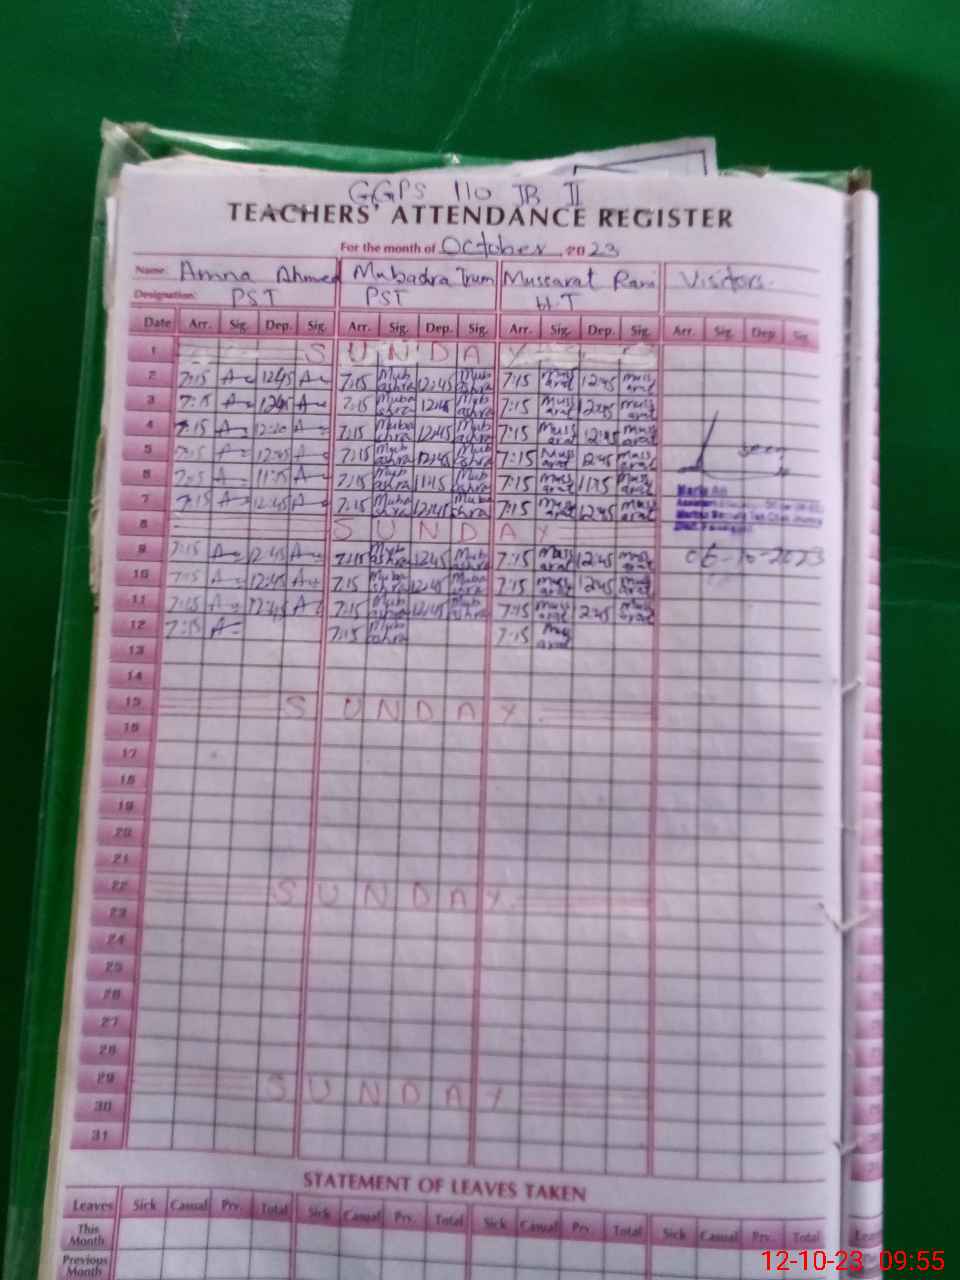 GGPS 110 JB II
TEACHERS' ATTENDANCE REGISTER
For the month of October, 2023
Name: Amna Ahmed Mubashra Irum Mussarat Rani Visitors.
Designation: PST PST H.T
Date Arr. Sig. Dep. Sig. Arr. Sig. Dep. Sig. Arr. Sig. Dep. Sig. Arr. Sig. Dep Sig.
1 SUNDAY
2 7:15 A 12:45 A 7:15 Mubashra 12:45 Mubashra 7:15 Mussarat 12:45 Mussarat
3 7:15 A 12:45 A 7:15 Mubashra 12:45 Mubashra 7:15 Mussarat 12:45 Mussarat
4 7:15 A A 7:15 Mubashra 12:45 Mubashra 7:15 Mussarat 12:45 Mussarat
5 7:15 A 12:45 A 7:15 Mubashra 12:45 Mubashra 7:15 Mussarat 12:45 Mussarat seen
6 7:15 A 11:15 A 7:15 Mubashra 11:15 Mubashra 7:15 Mussarat 11:15 Mussarat
7 7:15 A 12:45 A 7:15 Mubashra 12:45 Mubashra 7:15 Mussarat 12:45 Mussarat
8 SUNDAY
9 7:15 A 12:45 A 7:15 Mubashra 12:45 Mubashra 7:15 Mussarat 12:45 Mussarat 06-10-2023
10 7:15 A 12:45 A 7:15 Mubashra 12:45 Mubashra 7:15 Mussarat 12:45 Mussarat
11 7:15 A 12:45 A 7:15 Mubashra 12:45 Mubashra 7:15 Mussarat 12:45 Mussarat
12 7:15 A 7:15 Mubashra 7:15 Mussarat
13
14
15 SUNDAY
16
17
18
19
20
21
22 SUNDAY
23
24
25
26
27
28
29 SUNDAY
30
31
STATEMENT OF LEAVES TAKEN
Leaves Sick Casual Prv. Total Sick Casual Prv. Total Sick Casual Prv. Total Sick Casual Prv. Total Leaves
This Month
Previous Month
12-10-23 09:55